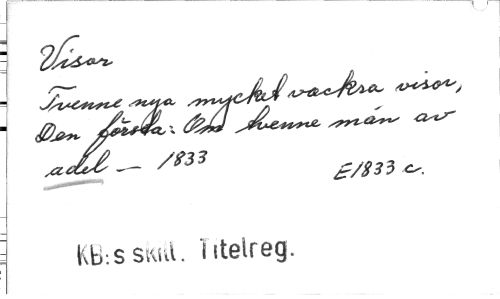 Visor
Tvenne nya mycket vackra visor,
Den första: Om tvenne män av
adel — 1833
E1833 c.
KB:s skill. Titelreg.